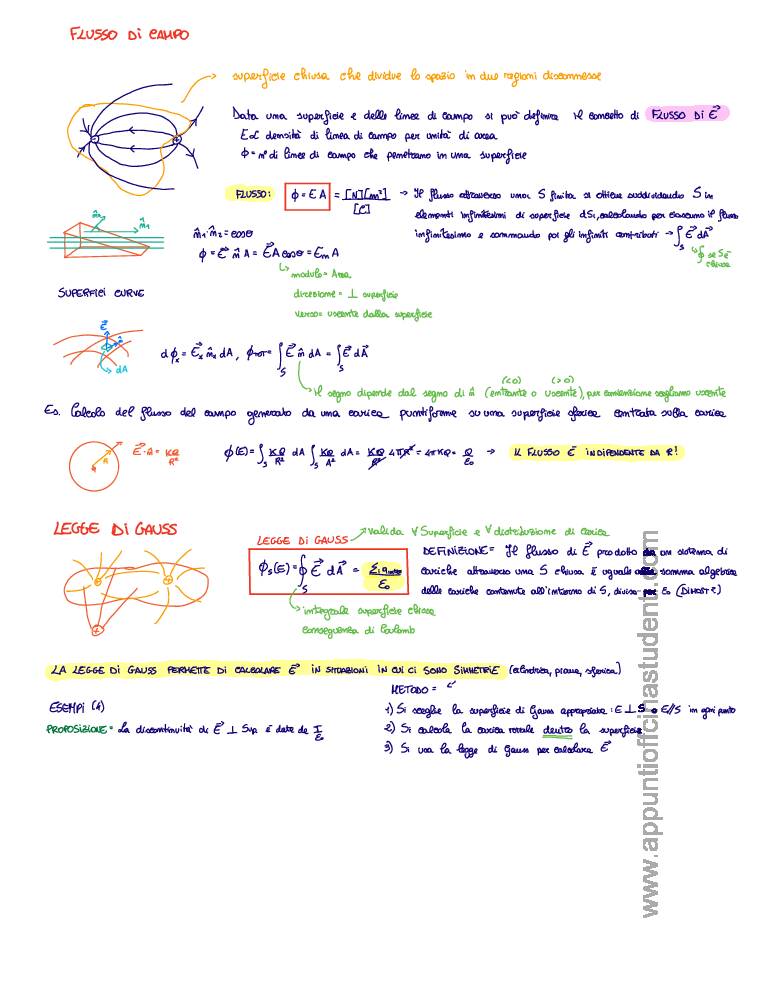 FLUSSO DI CAMPO
superficie chiusa che divide lo spazio in due regioni disconnesse
Data una superficie e delle linee di campo si può definire il concetto di FLUSSO DI E⃗
E∝ densità di linea di campo per unità di area
ϕ = n° di linee di campo che penetrano in una superficie
FLUSSO: ϕ = E A = [N][m²] / [C] → Il flusso attraverso una S finita si ottiene suddividendo S in
elementi infinitesimi di superficie dSi, calcolando per ciascuno il flusso
infinitesimo e sommando poi gli infiniti contributi → ∫_S E⃗ dA⃗
↳ ∮ se S è chiusa
n̂₂ n̂₁
n̂₁·n̂₂ = cosθ
ϕ = E⃗ n̂ A = E⃗ A cosθ = Em A
modulo = Area
direzione = ⊥ superficie
verso = uscente dalla superficie
SUPERFICI CURVE
E⃗ n̂ dA
dϕₓ = E⃗ₓ n̂ₓ dA, ϕTOT = ∫_S E⃗ n̂ dA = ∫_S E⃗ dA⃗
il segno dipende dal segno di n̂ (entrante o uscente), per convenzione scegliamo uscente
(<0) (>0)
Es. Calcolo del flusso del campo generato da una carica puntiforme su una superficie sferica centrata sulla carica
R E⃗·n̂ = KQ/R²
ϕ(E) = ∫_S KQ/R² dA ∫_S KQ/R² dA = KQ/R² 4πR² = 4πKQ = Q/ε₀ → IL FLUSSO È INDIPENDENTE DA R!
LEGGE DI GAUSS
LEGGE DI GAUSS → valida ∀ Superficie e ∀ distribuzione di carica
ϕ_S(E) = ∮_S E⃗ dA⃗ = Σᵢ qᵢₙₜ / ε₀
DEFINIZIONE = Il flusso di E⃗ prodotto da un sistema di
cariche attraverso una S chiusa è uguale alla somma algebrica
delle cariche contenute all'interno di S, diviso per ε₀
integrale superficie chiusa
conseguenza di Coulomb
LA LEGGE DI GAUSS PERMETTE DI CALCOLARE E⃗ IN SITUAZIONI IN CUI CI SONO SIMMETRIE (cilindrica, piana, sferica)
METODO =
ESEMPI (4)
1) Si sceglie la superficie di Gauss appropriata: E⊥S o E//S in ogni punto
PROPOSIZIONE = La discontinuità di E⃗ ⊥ Sup è data da
2) Si calcola la carica totale dentro la superficie
3) Si usa la legge di Gauss per calcolare E⃗
www.appuntiofficinastudenti.com